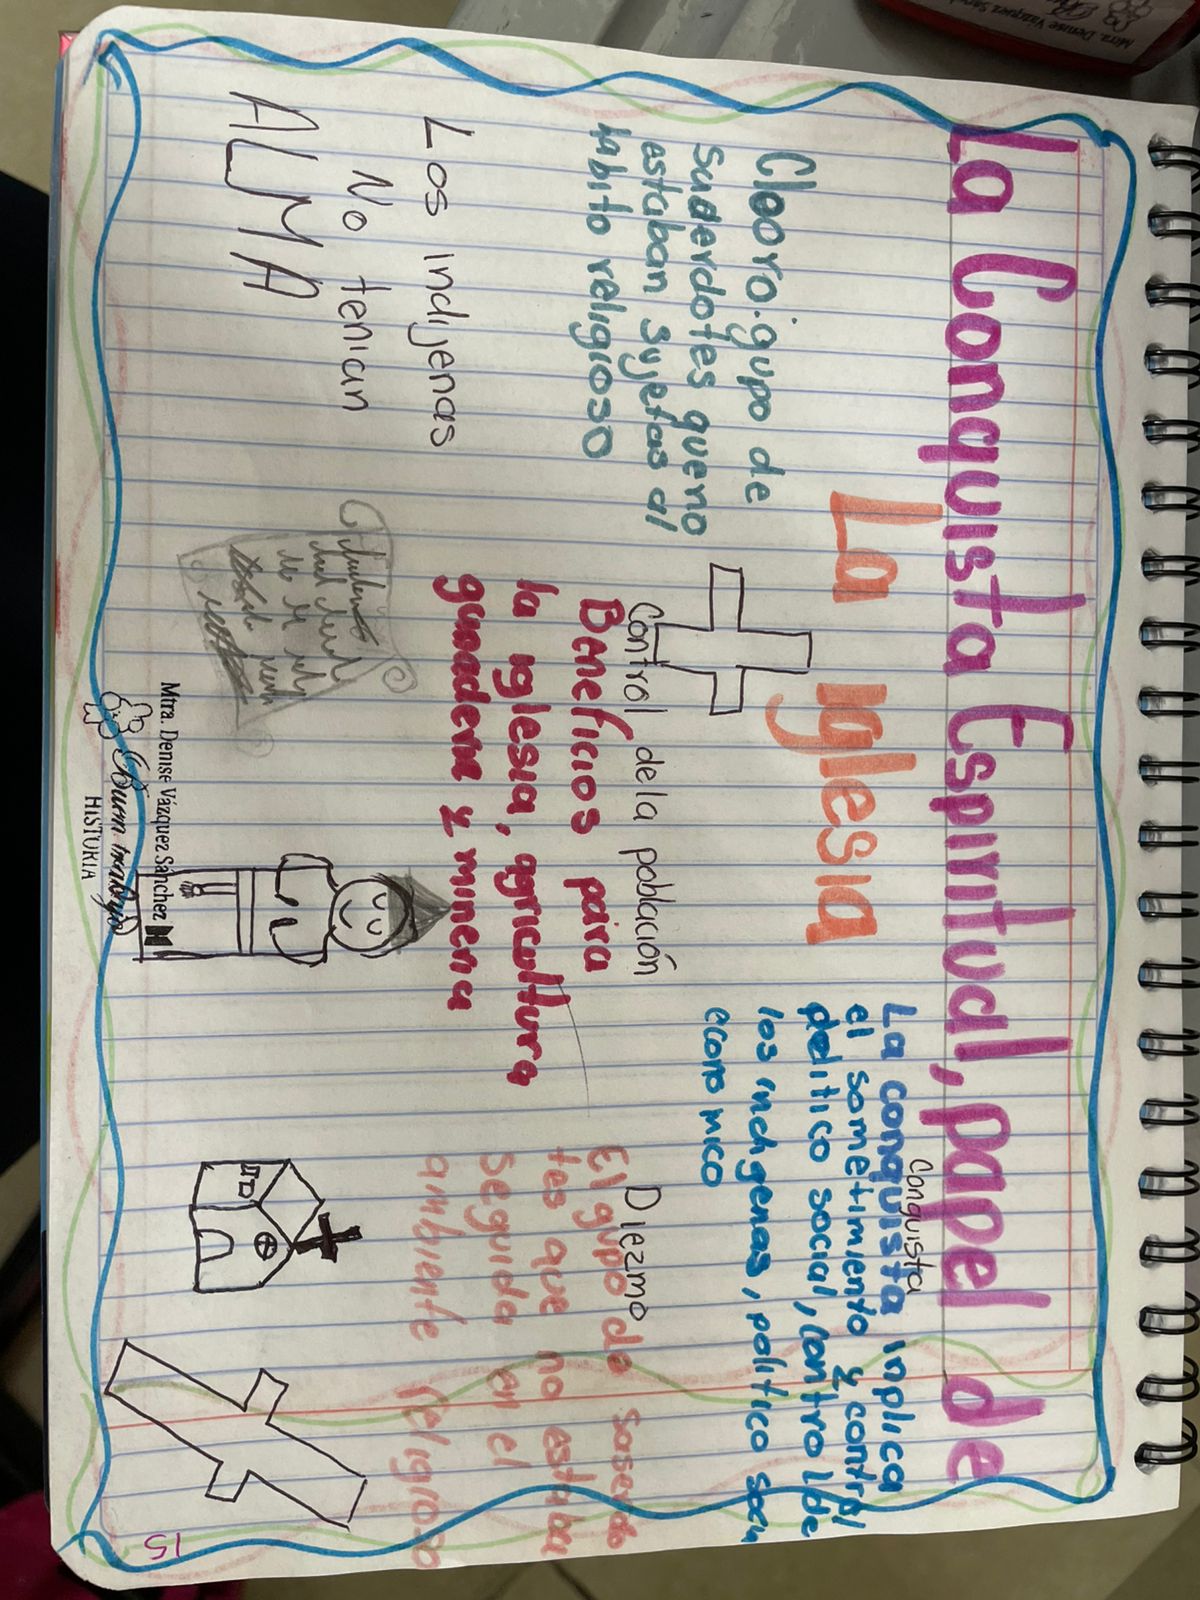 La Conquista Espiritual, papel de
La Iglesia
Cleoro: gupo de
Saderdotes queno
estaban Syjetas al
ambito religioso
Los indijenas
No tenian
ALMA
Control de la población
Beneficios para
la iglesia, agricultura
ganadera y minera
Conquista
La conquista inplica
el sometimiento y control
politico social, contro l de
los indigenas, politico soci
econo mico
Diezmo
El gupo de saserdo
tes que no estaba
Seguida en el
ambiente religioso
Mtra. Denise Vázquez Sánchez
Buen trabajo
HISTORIA
15
Mtra. Denise Vázquez